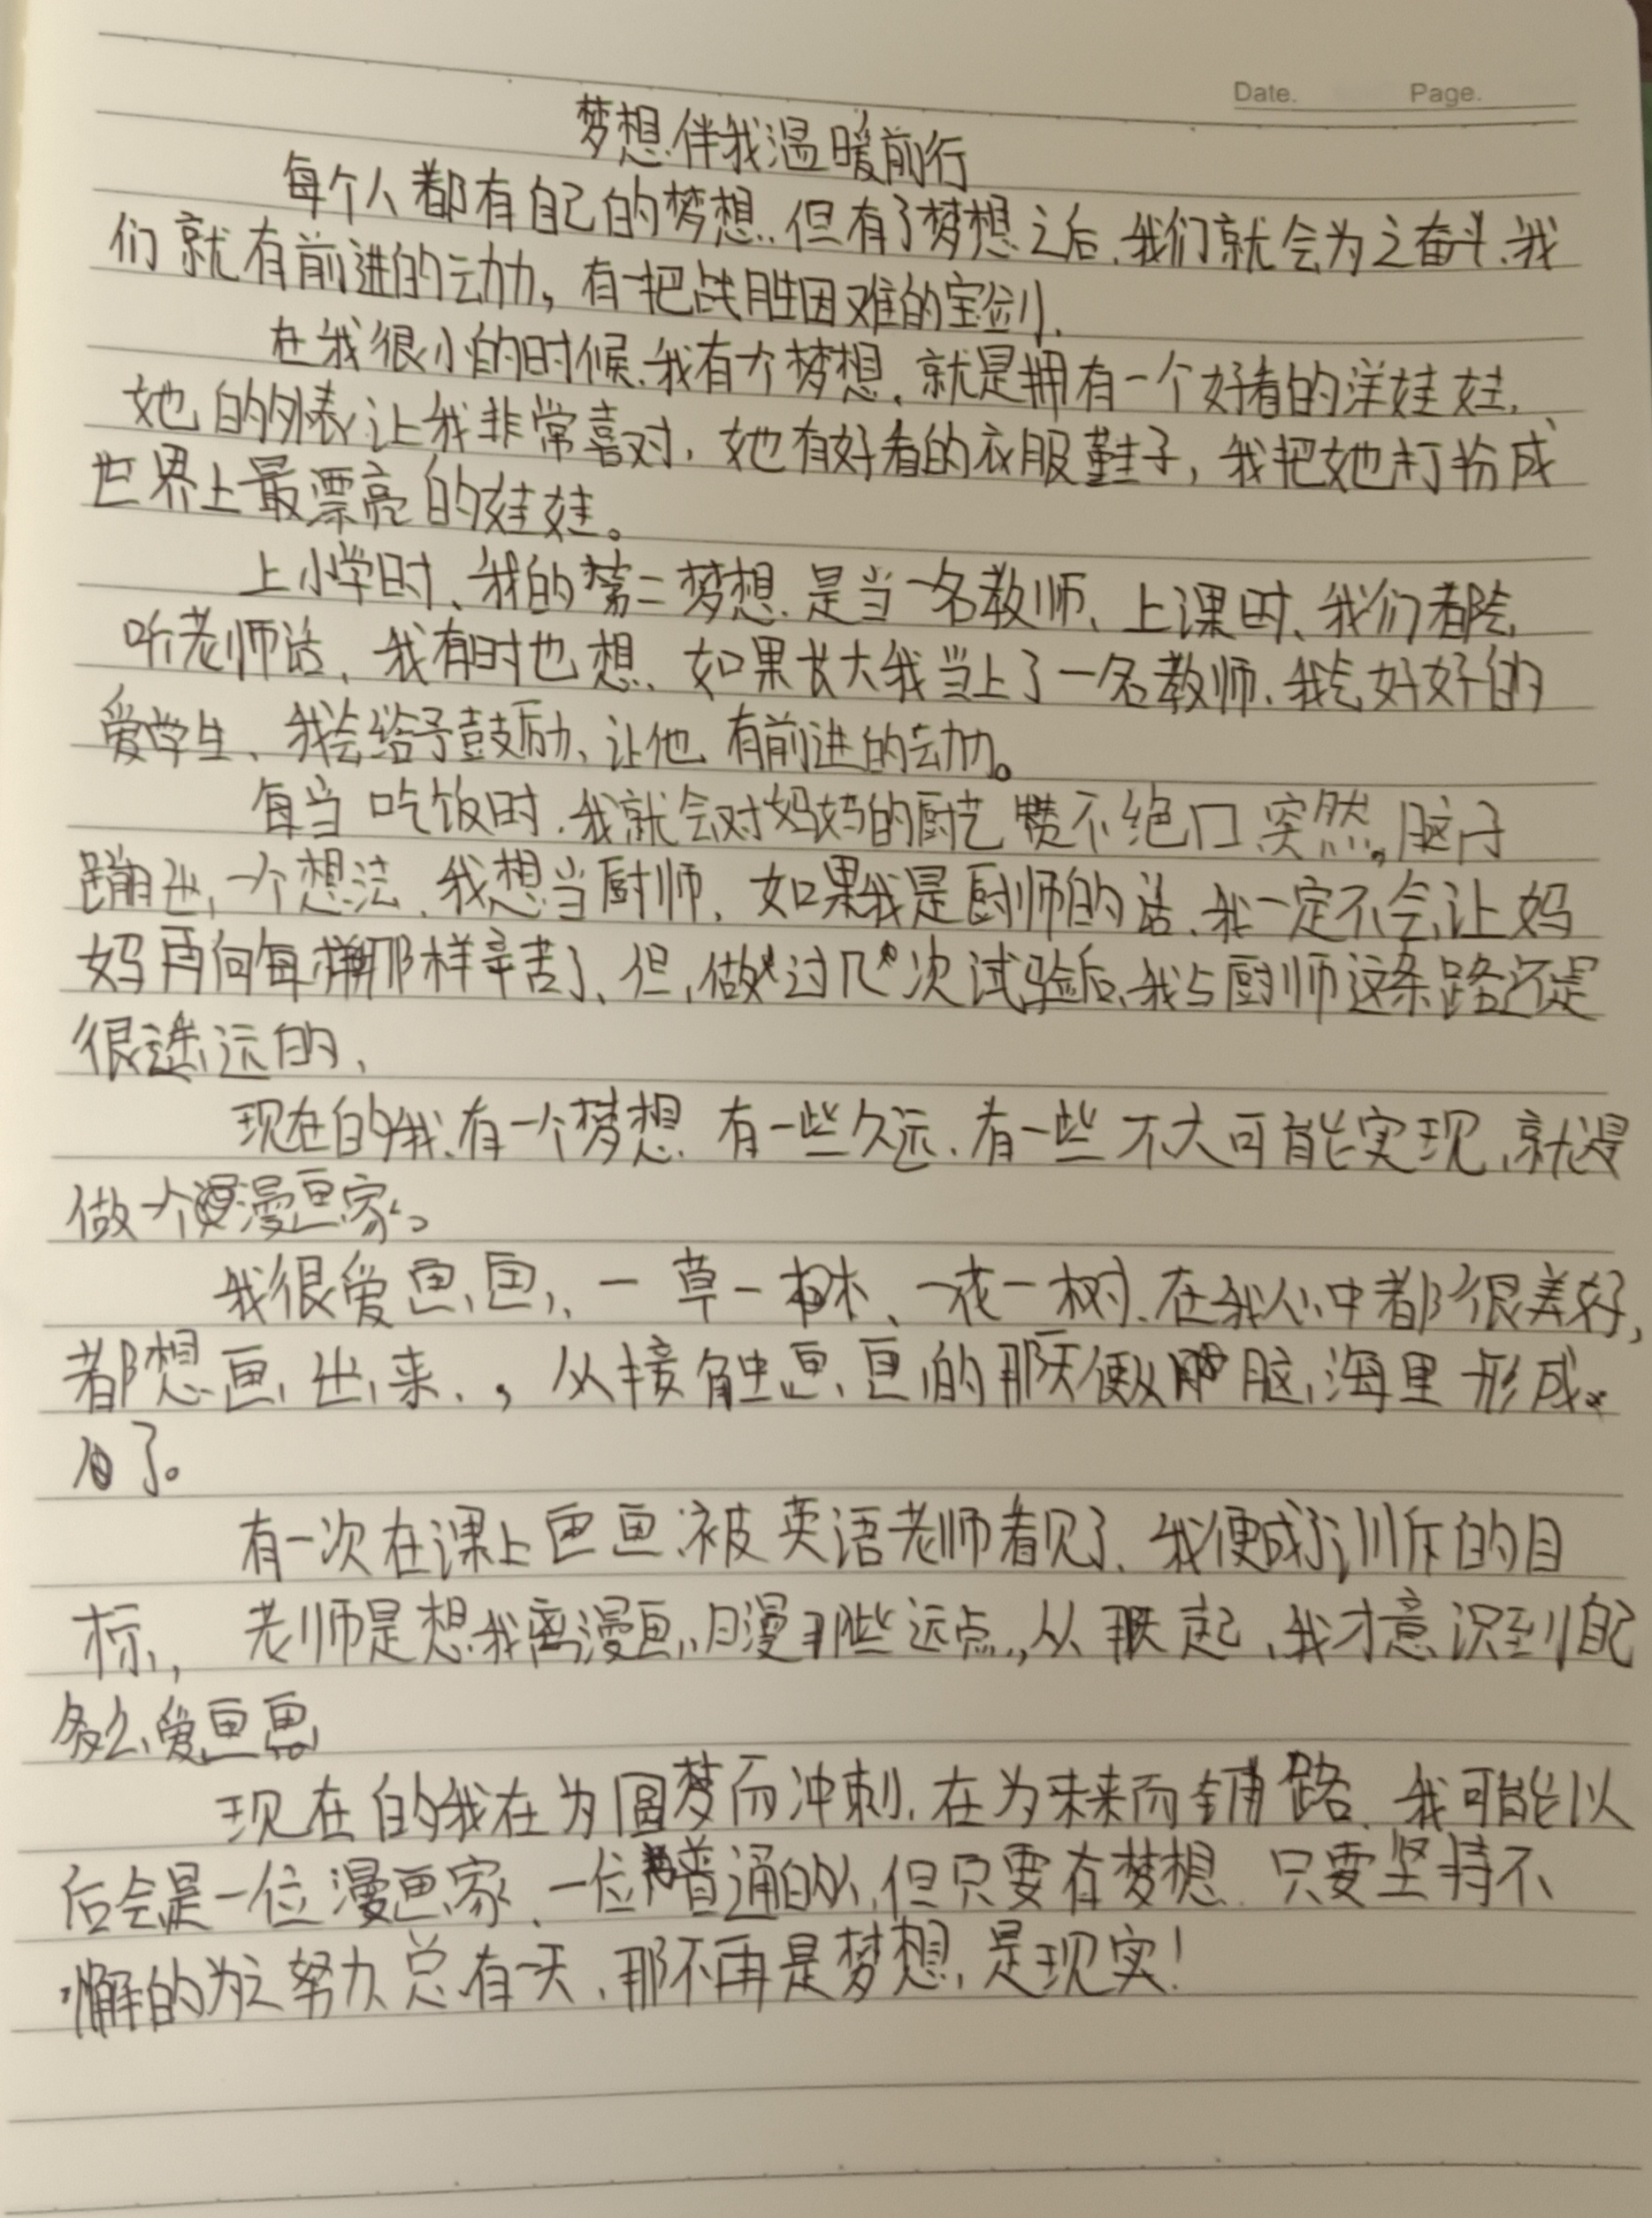 Date. Page.
梦想伴我温暖前行
每个人都有自己的梦想,但有了梦想之后,我们就会为之奋斗,我
们就有前进的动力,有一把战胜困难的宝剑,
在我很小的时候,我有个梦想,就是拥有一个好看的洋娃娃,
她的外表让我非常喜对,她有好看的衣服鞋子,我把她打扮成
世界上最漂亮的娃娃。
上小学时、我的第二梦想,是当一名教师、上课时、我们都会
听老师话,我有时也想,如果长大我当上了一名教师,我会好好的
爱学生、我会给予鼓励、让他、有前进的动力。
每当吃饭时,我就会对妈妈的厨艺赞不绝口突然,脑子
蹦出一个想法,我想当厨师,如果我是厨师的话,我一定不会让妈
妈再向每那样辛苦了、但,做过几次试验后,我与厨师这条路还是
很遥远的,
现在的我,有一个梦想,有一些久远,有一些不大可能实现,就是
做一个漫画家。
我很爱画画,一草一木、一花一树,在我心中都很美好,
都想画出来,,从接触画画的那天便从脑海里形成
了。
有一次在课上画画被英语老师看见了,我便成了训斥的目
标,老师是想我离漫画,日漫那些远点,从那天起,我才意识到自己
多么爱画画
现在的我在为圆梦而冲刺,在为未来而铺路、我可能以
后会是一位漫画家、一位普通的人,但只要有梦想,只要坚持不
懈的为之努力总有一天,那不再是梦想,是现实!